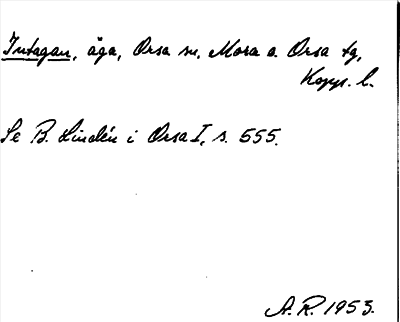 Intagan, äga, Orsa sn, Mora o. Orsa tg,
Kopp. l.
Se B. Lindén i Orsa I, s. 555.
A. R. 1953.